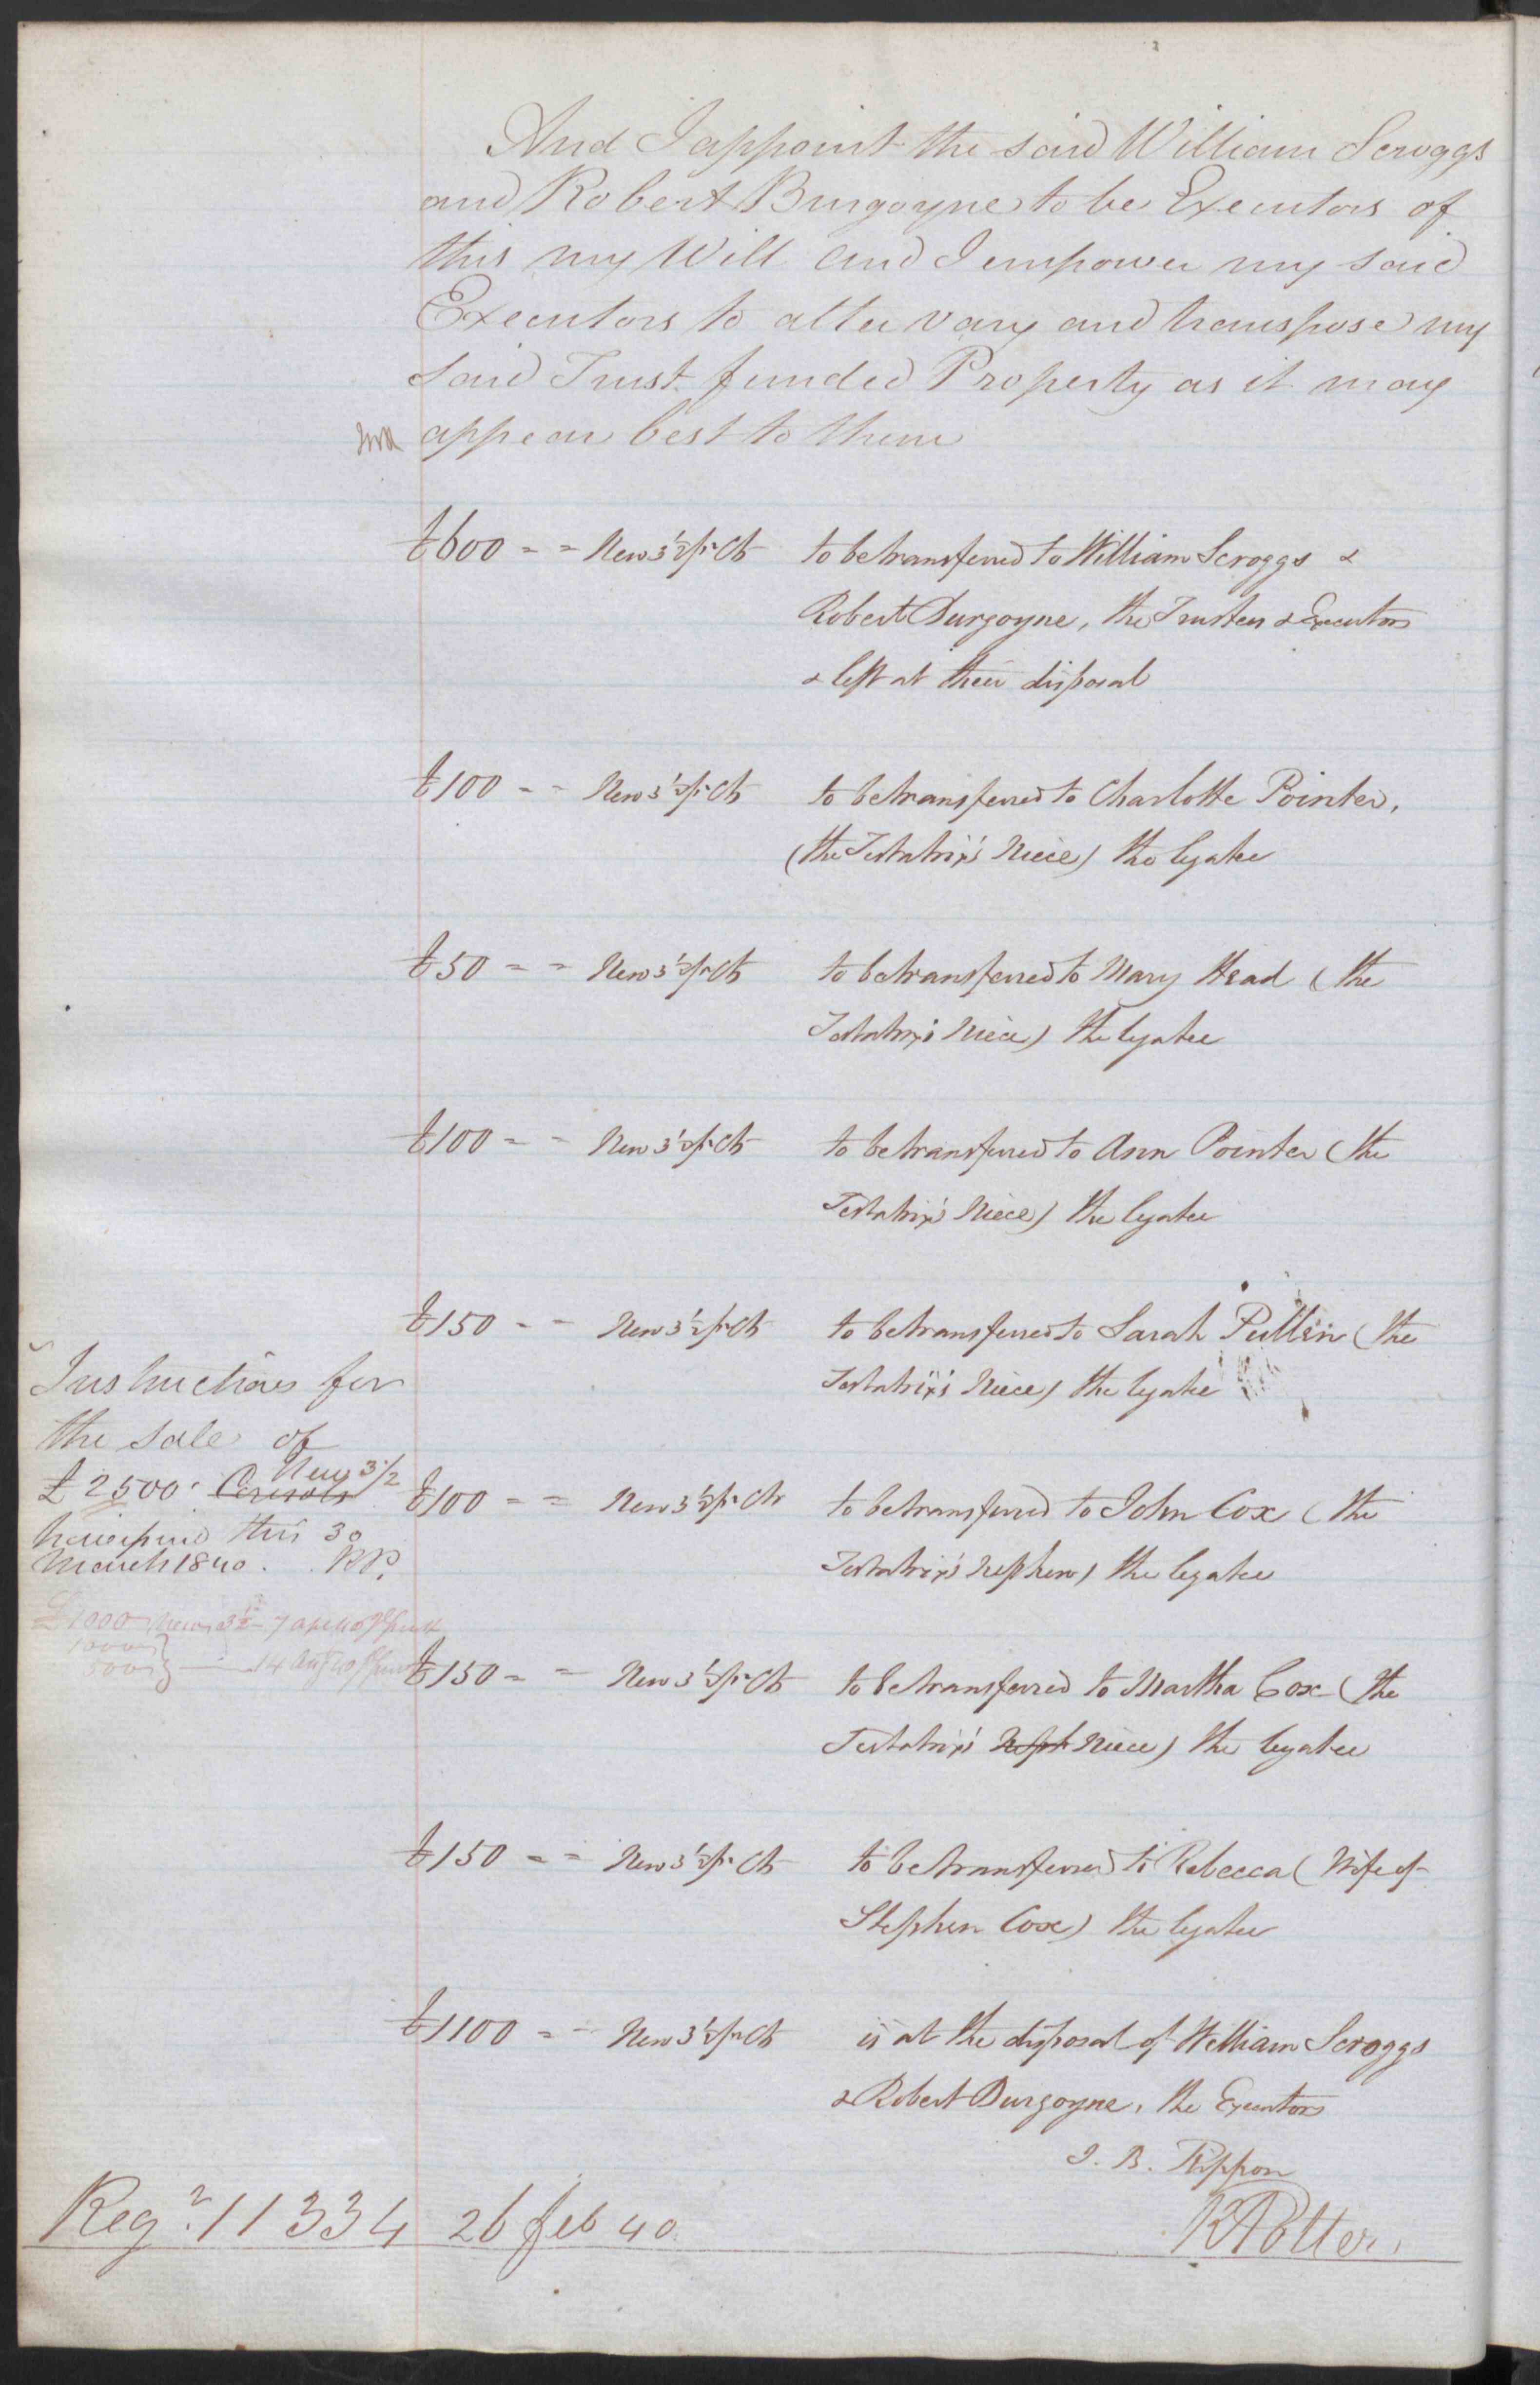 And I appoint the said William Scroggs
and Robert Burgoyne to be Executors of
this my Will and I empower my said
Executors to alter vary and transpose my
said Trust funded Property as it may
appear best to them
£600 - - New 3 1/2 pr Ct to be transferred to William Scroggs &
Robert Burgoyne, the Trustees & Executors
& left at their disposal
£100 - - New 3 1/2 pr Ct to be transferred to Charlotte Pointer,
(the Testatrix's Niece) the legatee
£50 - - New 3 1/2 pr Ct to be transferred to Mary Head (the
Testatrix's Niece) the legatee
£100 - - New 3 1/2 pr Ct to be transferred to Ann Pointer (the
Testatrix's Niece) the legatee
£150 - - New 3 1/2 pr Ct to be transferred to Sarah Pullin (the
Testatrix's Niece) the legatee
Instructions for
the sale of
New 3 1/2
£2500 Consols
this 30
March 1840. RP.
£1000 New 3 1/2 7 April
1000
500 14 Aug 40
£100 - - New 3 1/2 pr Ct to be transferred to John Cox (the
Testatrix's Nephew) the legatee
£150 - - New 3 1/2 pr Ct to be transferred to Martha Cox (the
Testatrix's Neph Niece) the legatee
£150 - - New 3 1/2 pr Ct to be transferred to Rebecca (Wife of
Stephen Cox) the legatee
£1100 - - New 3 1/2 pr Ct is at the disposal of William Scroggs
& Robert Burgoyne, the Executors
J. B. Rippon
Regr. 11334 26 feb 40. RPotter.